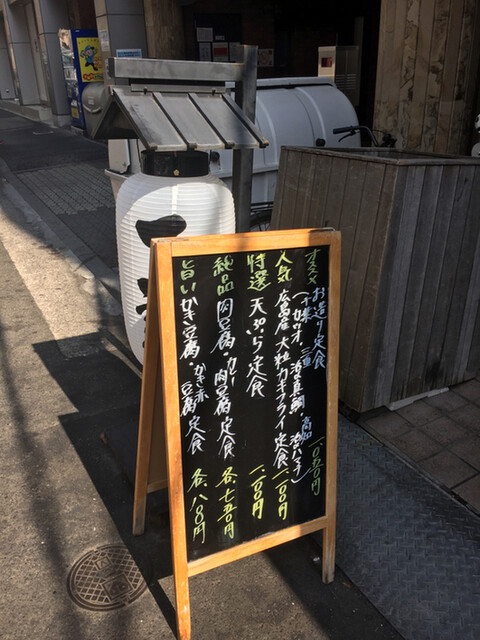 オススメ お造り定食 一〇五〇円
(千葉 カツオ、三重 活〆真鯛、高知 活ハマチ)
人気 広島産 大粒カキフライ定食 一、一〇〇円
特選 天ぷら定食 一、一〇〇円
絶品 肉豆腐・カレー肉豆腐定食 各、七五〇円
旨い かき豆腐・かき赤豆腐定食 各、八〇〇円